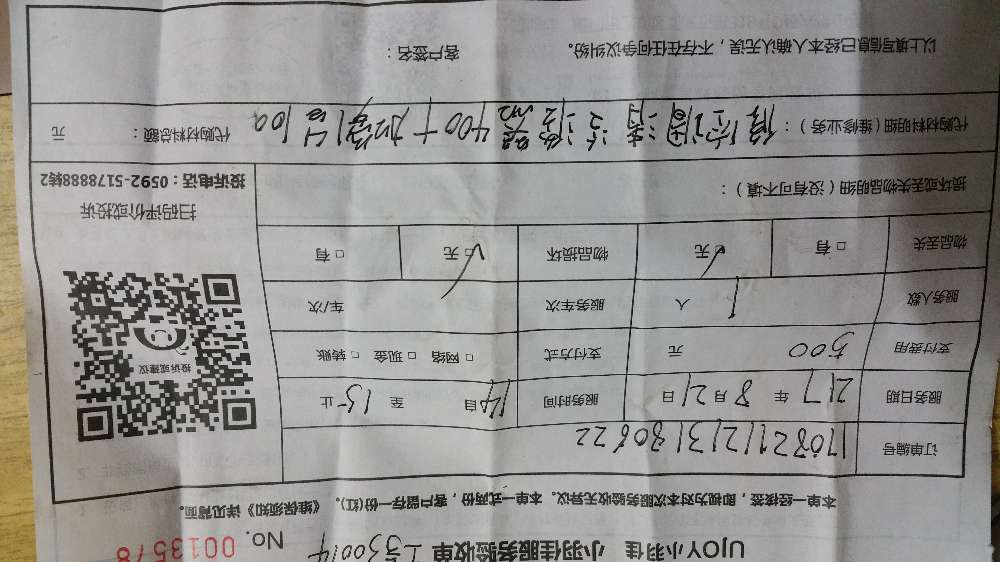 UJOY小羽佳 小羽佳服务验收单 工号30014 No. 0013578
本单一经接签，即视为对本次服务验收无异议。本单一式两份，客户留存一份(红)。《维保须知》详见背面。
订单编号 1708211213130622
服务日期 217年8月21日 服务时间 14自 至15止
支付费用 500元 支付方式 □网络 □现金 □转账
服务人数 1人 服务车次 车/次
物品丢失 □有 □无 物品损坏 □无 □有
损坏或丢失物品明细（没有可不填）：
投诉或建议
扫码评价或投诉
投诉电话：0592-5178888转2
代购材料明细（维修业务）：修空调 400+加 100 代购材料总额： 元
以上填写信息已经本人确认无误，不存在任何争议纠纷。 客户签名：